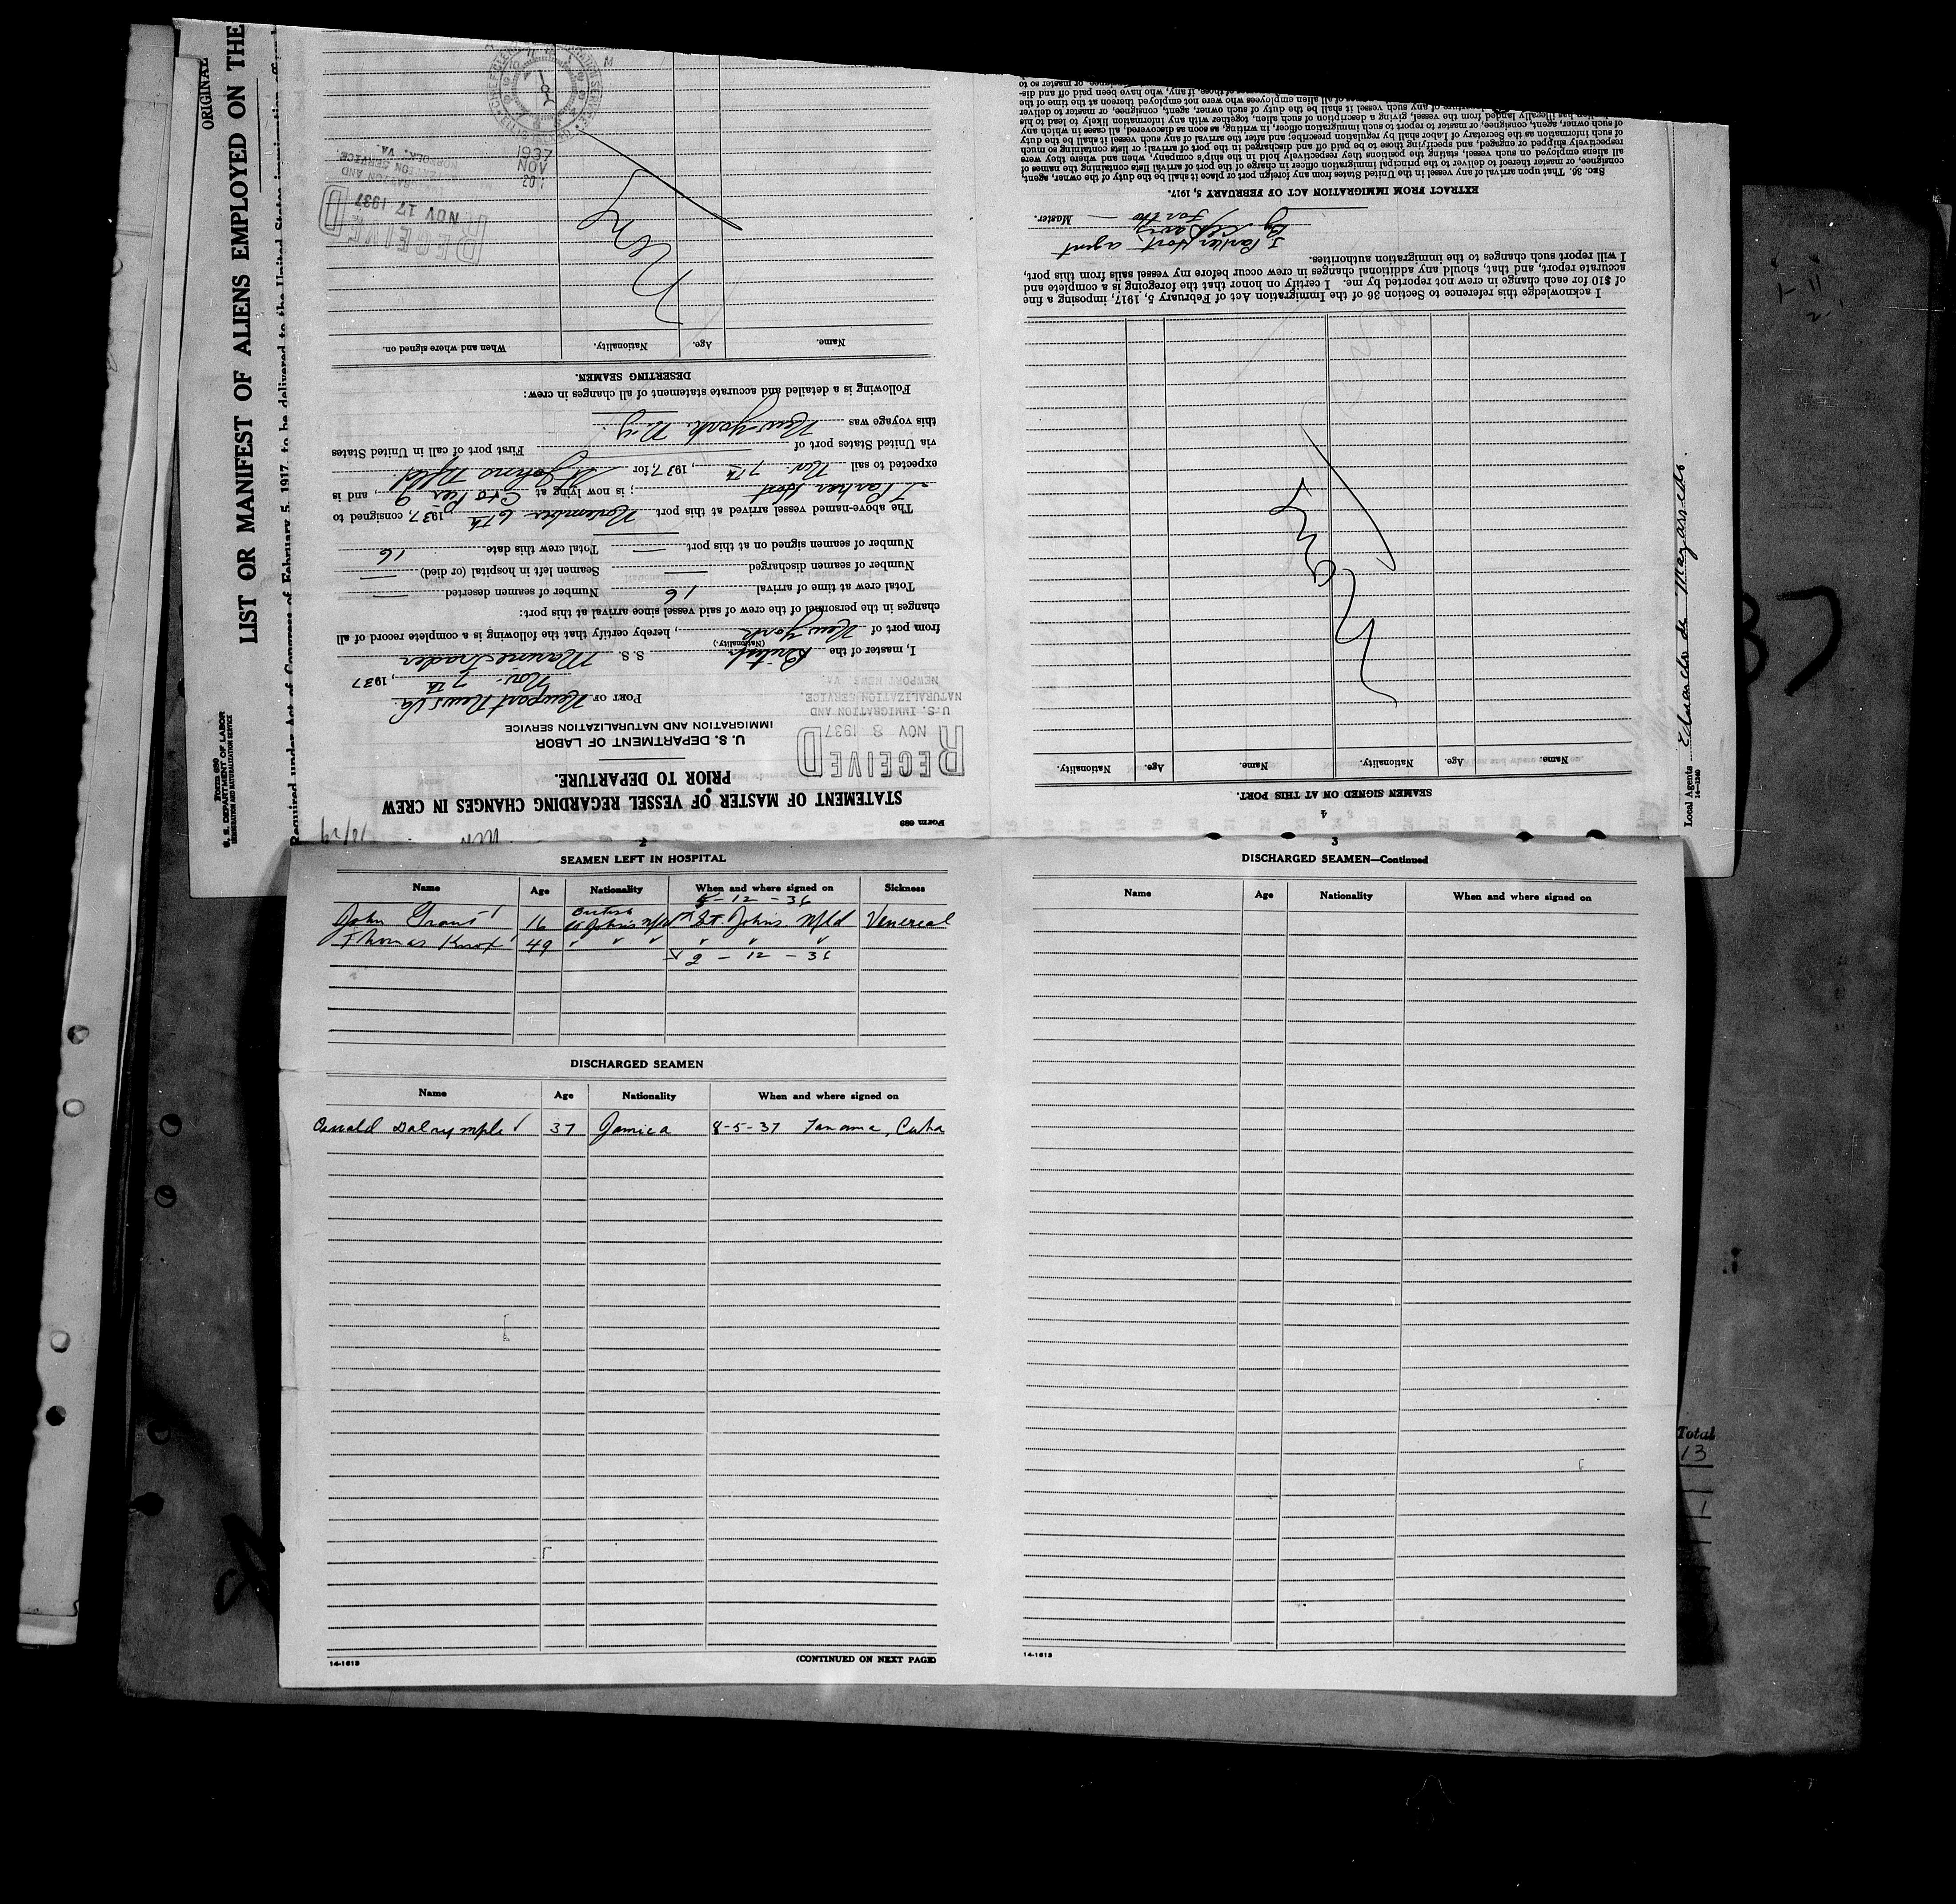 ORIGINAL
LIST OR MANIFEST OF ALIENS EMPLOYED ON THE
Required under Act of Congress of February 5, 1917, to be delivered to the United States immigration
Form 680
U. S. DEPARTMENT OF LABOR
IMMIGRATION AND NATURALIZATION SERVICE
Form 689
STATEMENT OF MASTER OF VESSEL REGARDING CHANGES IN CREW
PRIOR TO DEPARTURE.
U. S. DEPARTMENT OF LABOR
IMMIGRATION AND NATURALIZATION SERVICE
RECEIVED
NOV 8 1937
U.S. IMMIGRATION AND
NATURALIZATION SERVICE
NEWPORT NEWS VA.
PORT OF Newport News Va.
Nov. 7th, 1937
I, master of the British S. S. Marine Trader
(Nationality.)
from port of New York, hereby certify that the following is a complete record of all
changes in the personnel of the crew of said vessel since arrival at this port:
Total crew at time of arrival 16 Number of seamen deserted —
Number of seamen discharged — Seamen left in hospital (or died) —
Number of seamen signed on at this port — Total crew this date 16
The above-named vessel arrived at this port November 6th, 1937, consigned to
J Parker Host; is now lying at C + O Pier 9, and is
expected to sail Nov. 7th, 1937, for St Johns Nfld
via United States port of First port of call in United States
this voyage was New York N.Y.
Following is a detailed and accurate statement of all changes in crew:
DESERTING SEAMEN.
Name. Age. Nationality. When and where signed on.
RECEIVED
NOV 17 1937
NORFOLK, VA.
1937
NOV
20
4
SEAMEN SIGNED ON AT THIS PORT.
Name. Age. Nationality. Name. Age. Nationality.
I acknowledge this reference to Section 36 of the Immigration Act of February 5, 1917, imposing a fine
of $10 for each change in crew not reported by me. I certify on honor that the foregoing is a complete and
accurate report, and that, should any additional changes in crew occur before my vessel sails from this port,
I will report such changes to the immigration authorities.
J Parker Host, agent
By
For the — Master.
EXTRACT FROM IMMIGRATION ACT OF FEBRUARY 5, 1917.
SEC. 36. That upon arrival of any vessel in the United States from any foreign port or place it shall be the duty of the owner, agent,
consignee, or master thereof to deliver to the principal immigration officer in charge of the port of arrival lists containing the names of
all aliens employed on such vessel, stating the positions they respectively hold in the ship's company, when and where they were
respectively shipped or engaged, and specifying those to be paid off and discharged in the port of arrival; or lists containing so much
of such information as the Secretary of Labor shall by regulation prescribe; and after the arrival of any such vessel it shall be the duty
of such owner, agent, consignee, or master to report to such immigration officer, in writing, as soon as discovered, all cases in which any
alien has illegally landed from the vessel, giving a description of such alien, together with any information likely to lead to his
of any such vessel it shall be the duty of such owner, agent, consignee, or master to deliver
of all alien employees who were not employed thereon at the time of the
of those, if any, who have been paid off and dis-
or master so to
Local Agents Eduardo de
14-1240
2
SEAMEN LEFT IN HOSPITAL
Name Age Nationality When and where signed on Sickness
5-12-36
John Grant 16 British St Johns Nfld St. Johns Nfld Venereal
Thomas Knox 49 " " " " " "
2-12-36
DISCHARGED SEAMEN
Name Age Nationality When and where signed on
Oswald Dalrymple 37 Jamica 8-5-37 Tanamo, Cuba
14-1613
(CONTINUED ON NEXT PAGE)
3
DISCHARGED SEAMEN—Continued
Name Age Nationality When and where signed on
14-1613
Total
13
1
37